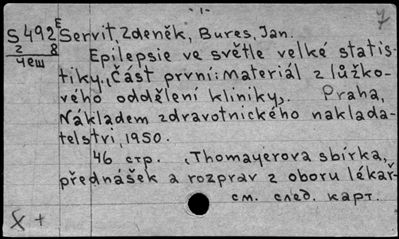 -1-
7
S492 E Servít, Zdeněk, Bures, Jan.
2 8
Чеш
Epilepsie ve světle velké statis-
tiky, Část první: Materiál z lůžko-
vého oddělení kliniky. Praha,
Nákladem zdravotnického naklada-
telstri, 1950.
46 стр. (Thomayerova sbírka,
přednášek a rozprav z oboru lékař-
см. след. карт.
X +